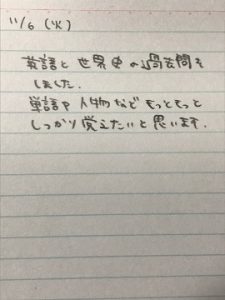 11/6 (火)
英語と世界史の過去問を
しました.
単語や人物などもっともっと
しっかり覚えたいと思います.